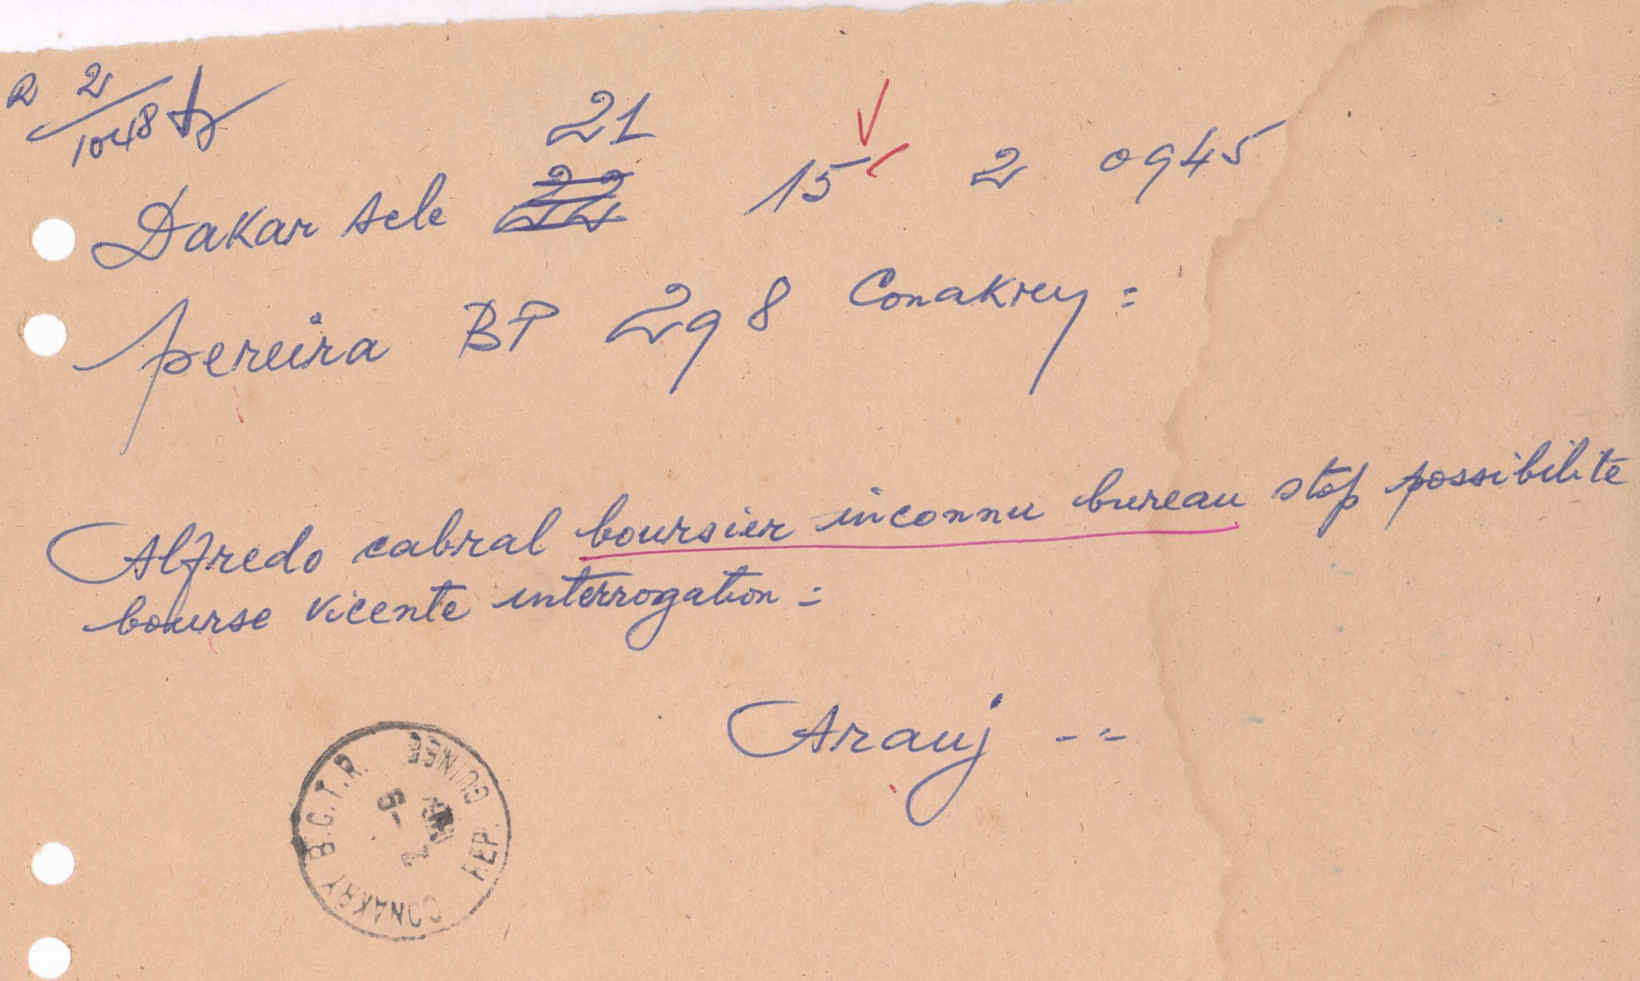 R 2
1048
21
Dakar tele 22 15 2 0945
pereira BP 298 Conakry =
Alfredo cabral boursier inconnu bureau stop possibilite
bourse vicente interrogation =
Arauj --
CONAKRY B.C.T.R. REP. GUINEE
2